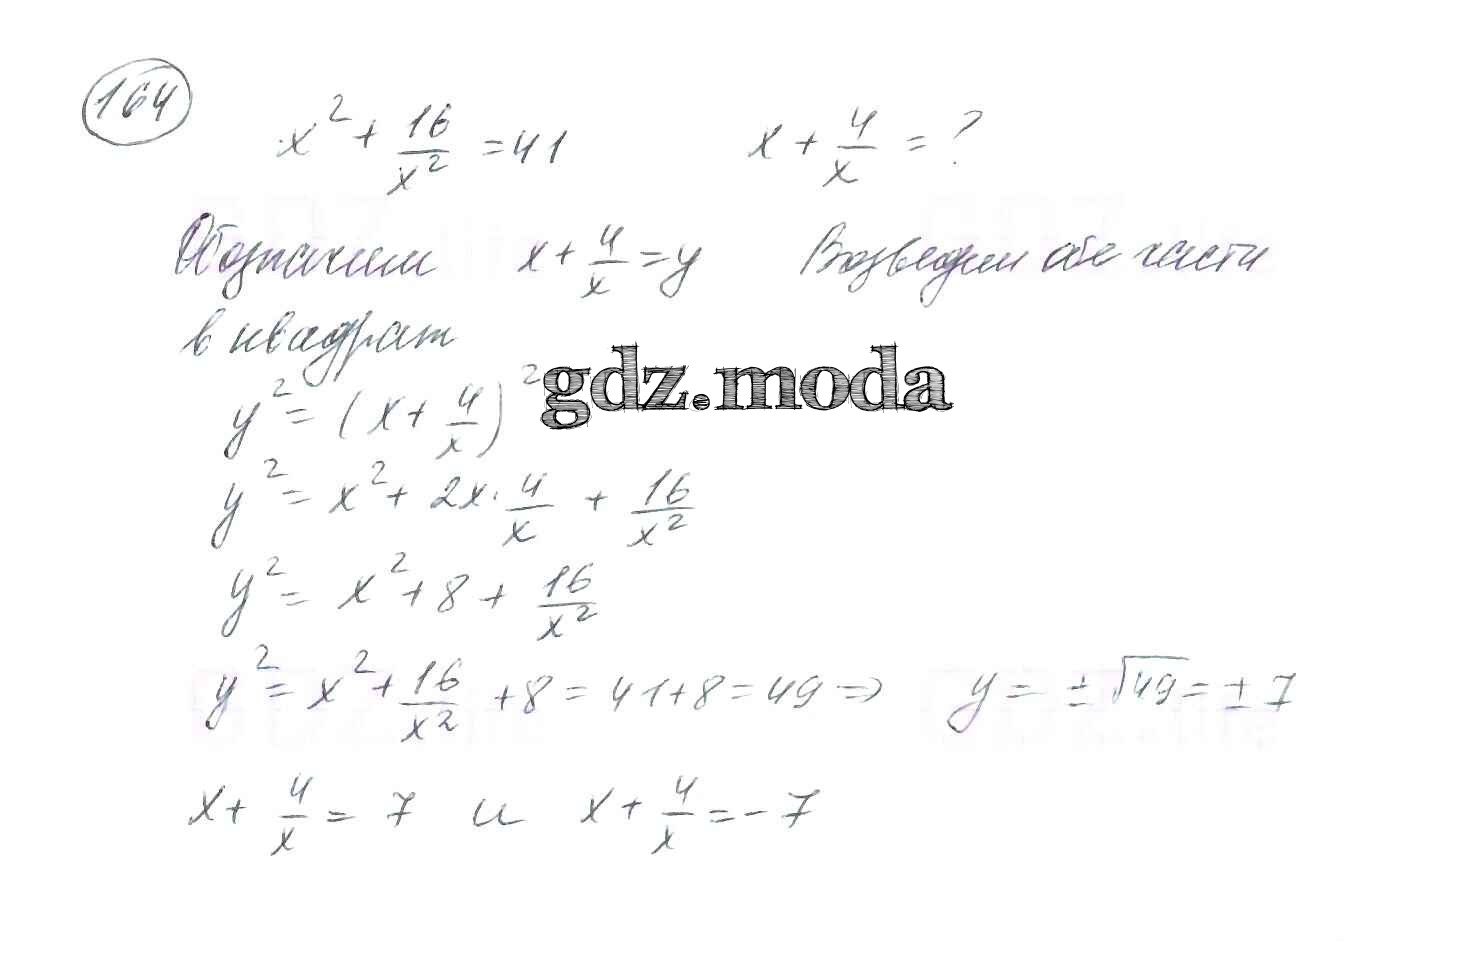 164
x² + 16/x² = 41 x + 4/x = ?
Обозначим x + 4/x = y Возведём обе части
в квадрат
y² = (x + 4/x)²
gdz.moda
y² = x² + 2x · 4/x + 16/x²
y² = x² + 8 + 16/x²
y² = x² + 16/x² + 8 = 41 + 8 = 49 ⇒ y = ± √49 = ± 7
x + 4/x = 7 и x + 4/x = - 7